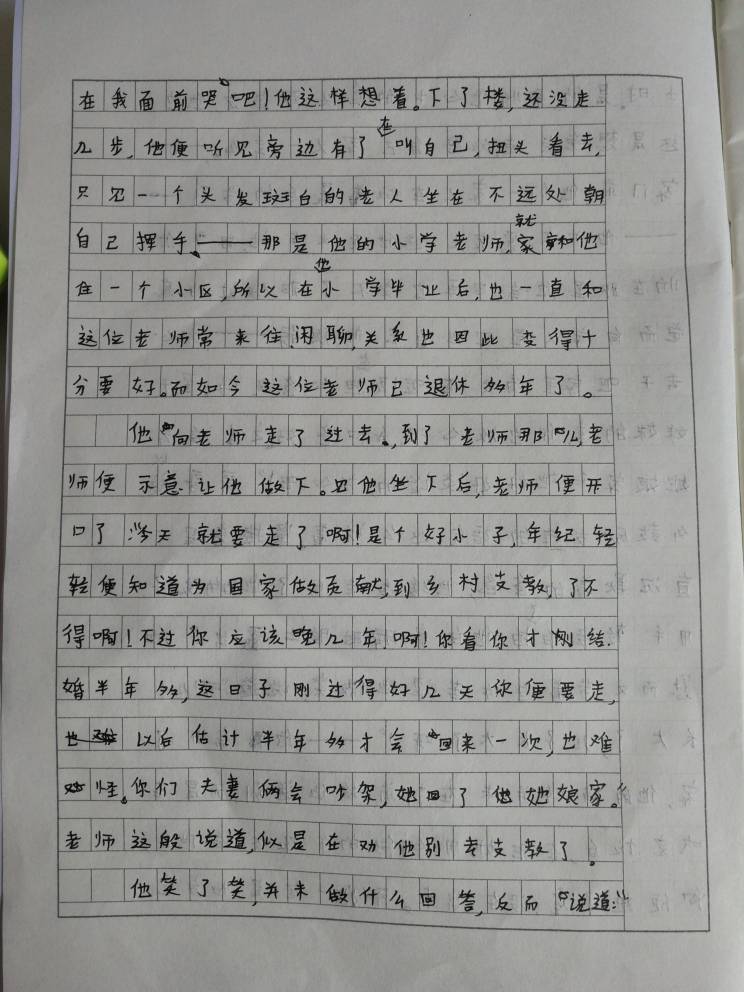 在我面前哭吧！他这样想着。下了楼，还没走
几步，他便听见旁边有了在叫自己，扭头看去，
只见一个头发斑白的老人坐在不远处朝
自己挥手——那是他的小学老师，家就和他
住一个小区，所以在他小学毕业后，也一直和
这位老师常来往、闲聊，关系也因此变得十
分要好。而如今这位老师已退休多年了。
他向老师走了过去。到了老师那儿，老
师便示意让他做下。他坐下后，老师便开
口了“今天就要走了啊！是个好小子，年纪轻
轻便知道为国家做贡献，到乡村支教，了不
得啊！不过你应该晚几年啊！你看你才刚结
婚半年多，这日子刚过得好几天你便要走，
以后估计半年多才会回来一次，也难
怪你们夫妻俩会吵架，她回了她娘家。”
老师这般说道，似是在劝他别去支教了。
他笑了笑，并未做什么回答，反而说道：“